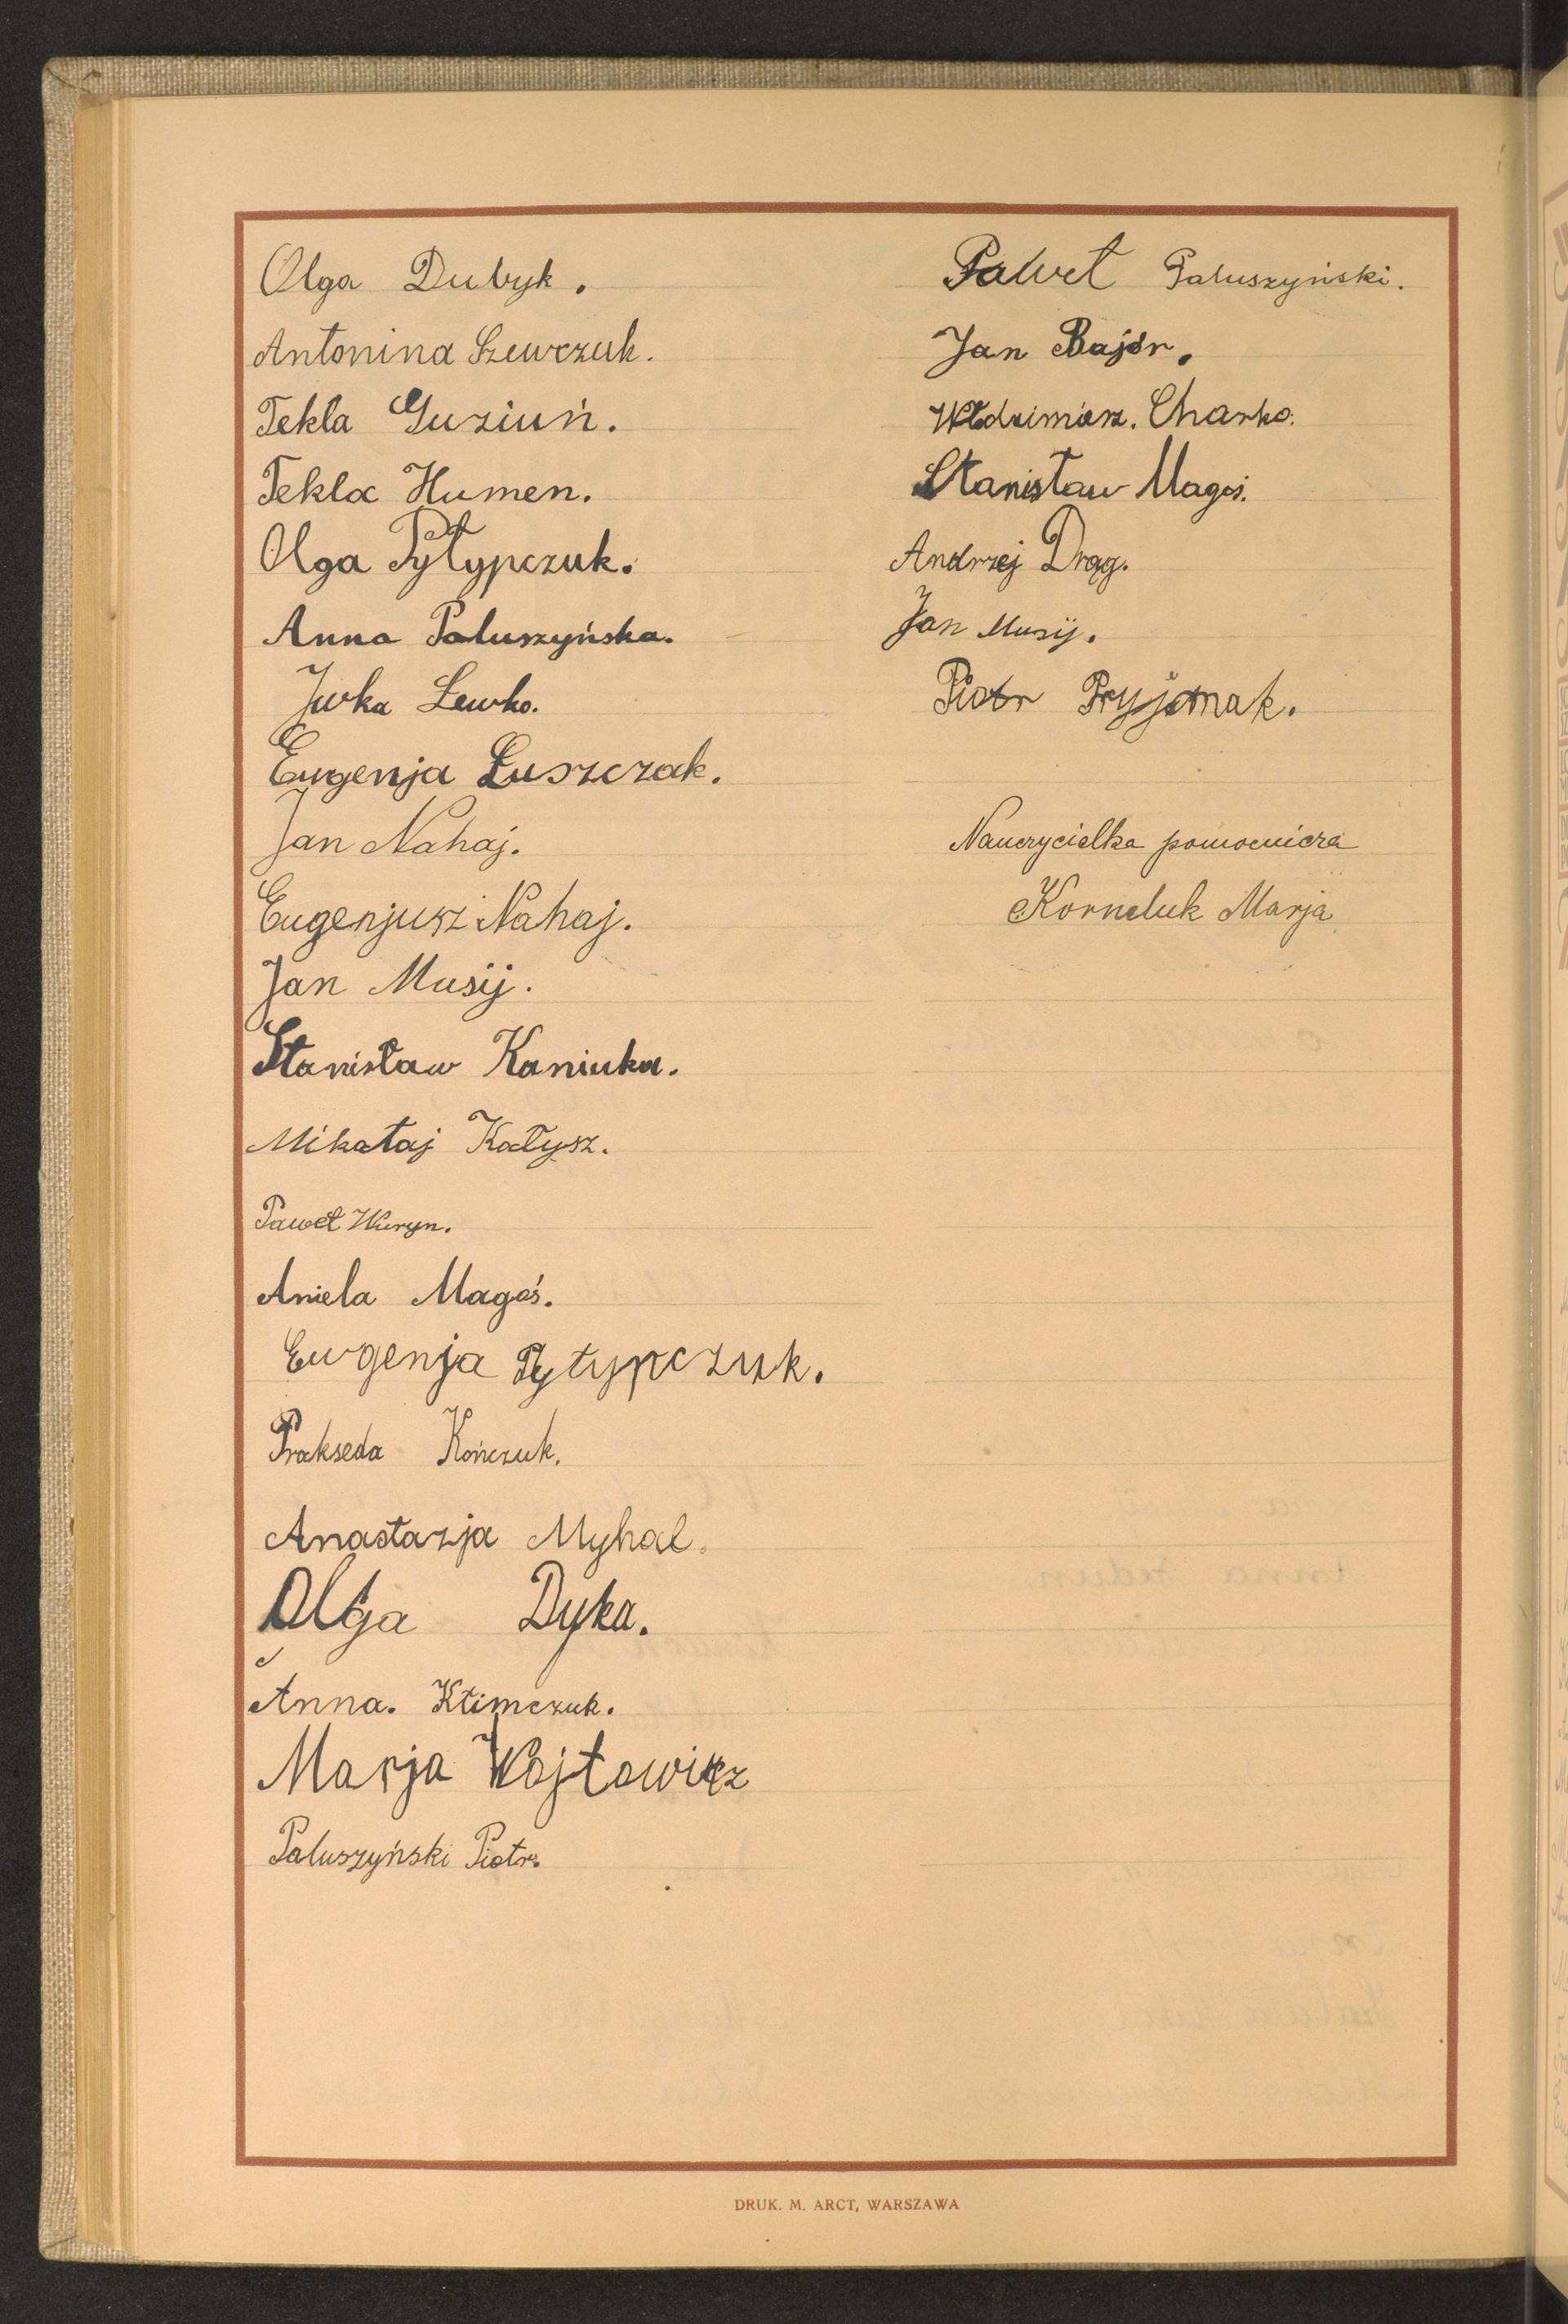 Olga Dubyk.
Antonina Szewczuk.
Tekla Guziuń.
Tekla Humen.
Olga Pyłypczuk.
Anna Paluszyńska.
Jwka Lewko.
Eugenja Łuszczak.
Jan Nahaj.
Eugenjusz Nahaj.
Jan Musij.
Stanisław Kaniuka.
Mikołaj Kałysz.
Paweł Wuryn.
Aniela Magoś.
Eugenja Pyłypczuk.
Prakseda Kończuk.
Anastazja Myhal.
Olga Dyka.
Anna. Klimczuk.
Marja Wojtowicz
Paluszyński Piotr.
Paweł Paluszyński.
Jan Bajór.
Włodzimierz. Charko.
Stanisław Magoś.
Andrzej Drąg.
Jan Musij.
Piotr Pryjmak.
Nauczycielka pomocnicza
Korneluk Marja
DRUK. M. ARCT, WARSZAWA